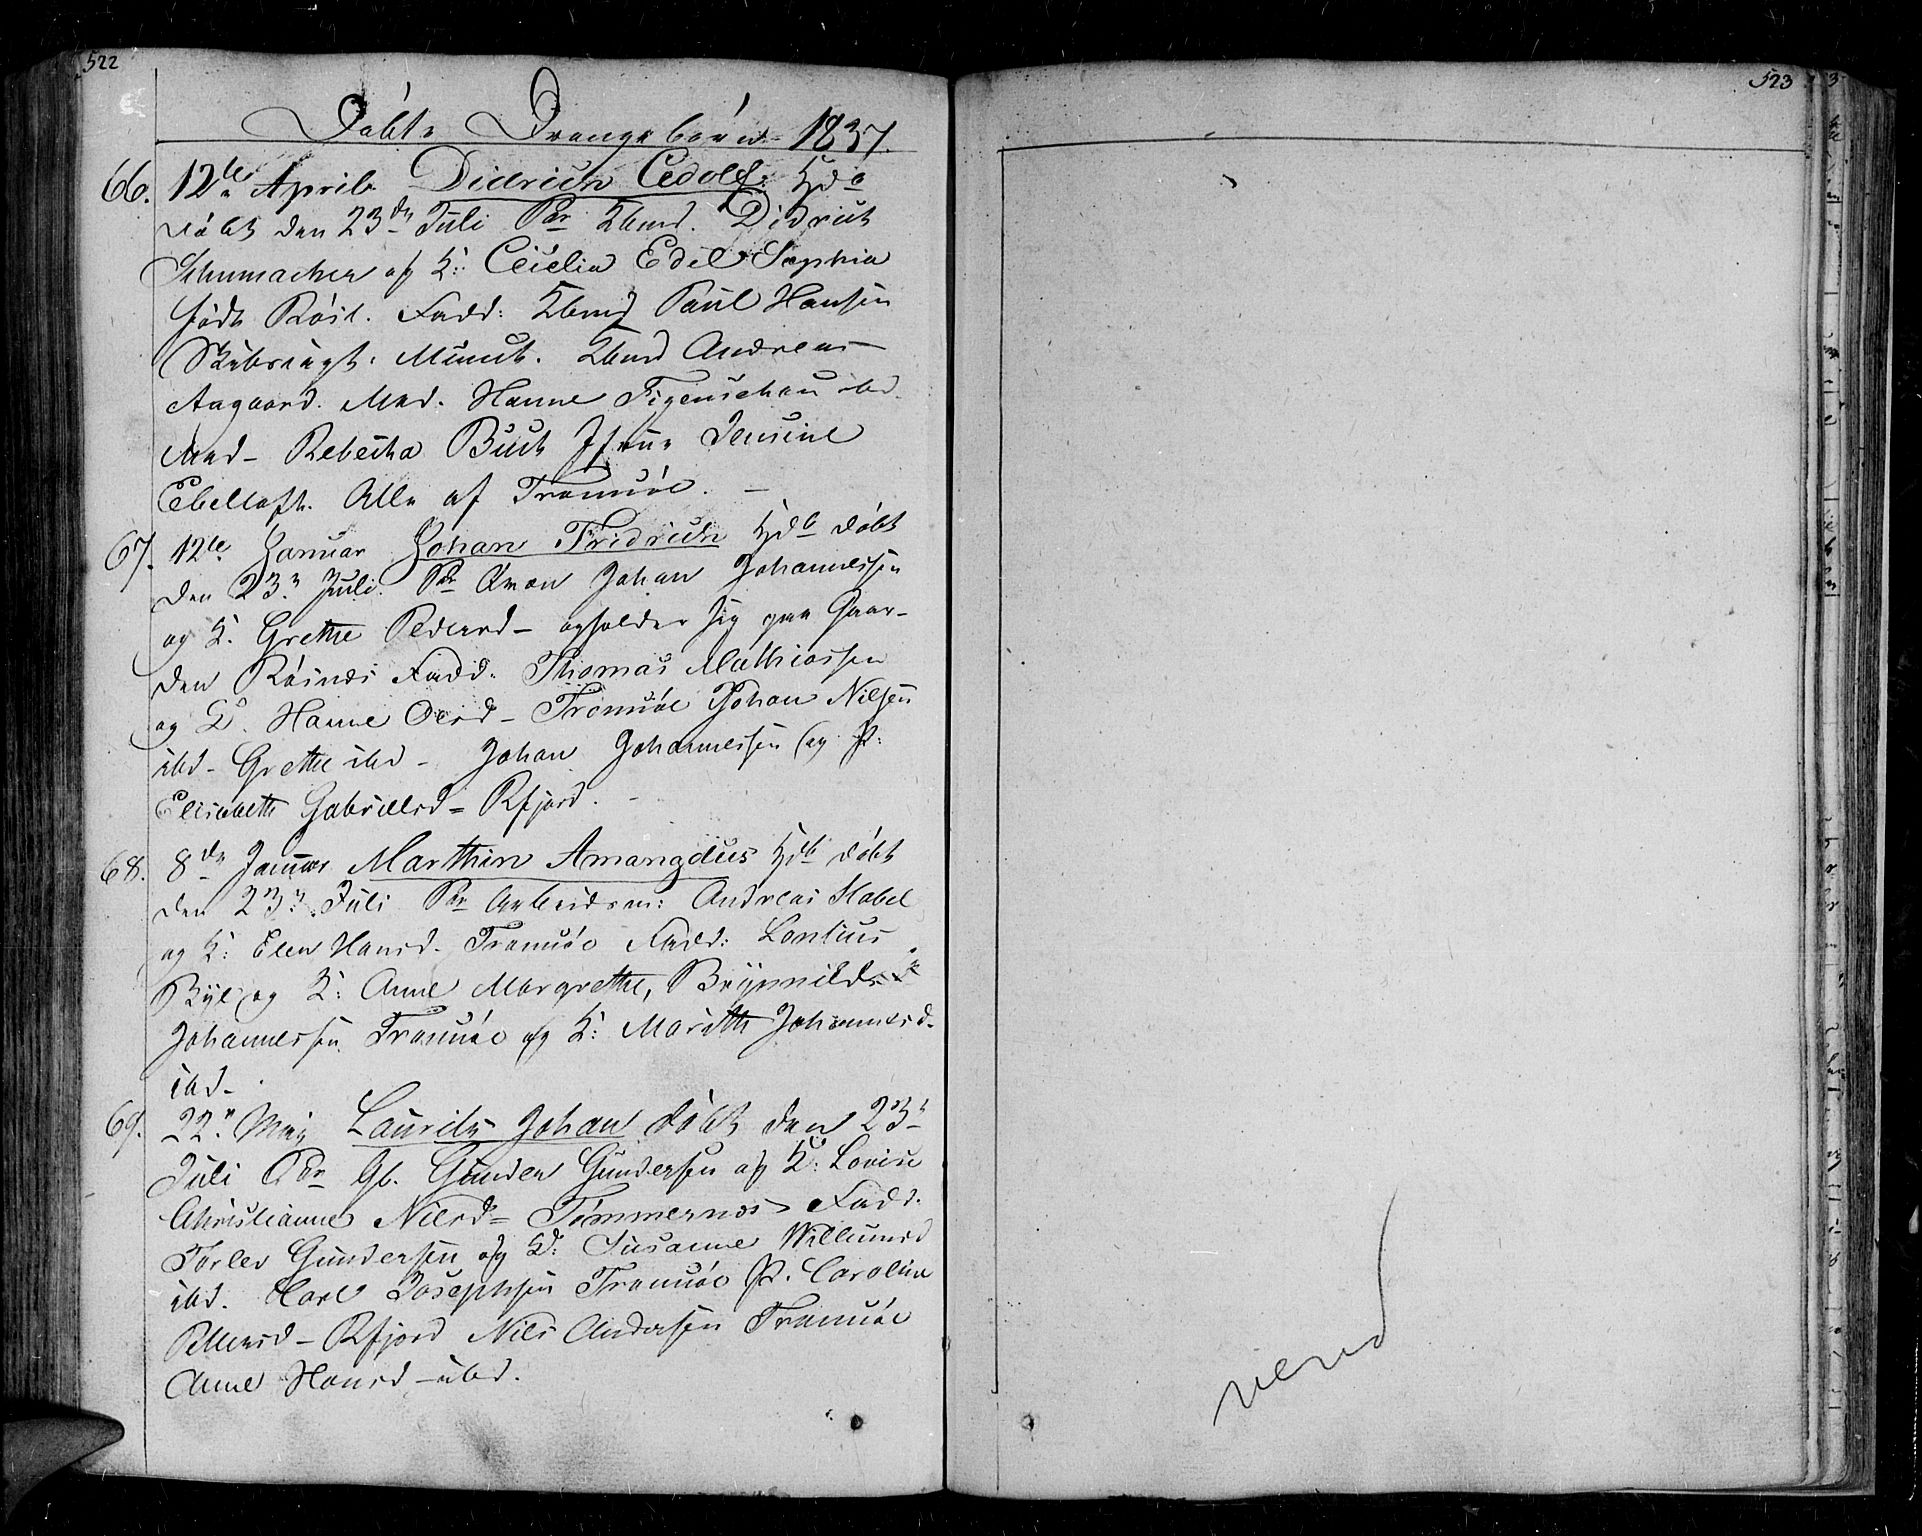 522
Døbte Drengebørn 1837.
66. 12te April Didrich Cedolf: Hjdb
døbt den 23de Juli For Kbmd. Didrich
Schumacher og K: Cicilia Edel Sophia
født Røst. Fadd: Kbmd Paul Hansen
Skibsrügt. Kbmd Andreas
Aagaard. Mad. Hanne Figenschau ibd.
Mad- Rebecka Buck Jfrue Jensine
Ebeltoft. Alle af Tromsöe. -
67. 12te Januar Johan Fridrich Hjdb døbt
den 23de Juli. For Qvæn Johan Johannessen
og K. Grethe Pedersd- opholder sig paa Gaar-
den Røsnes Fadd. Thomas Mathiassen
og K. Hanne Olsd- Tromsöe Johan Nilsen
ibd- Grethe ibd- Johan Johannessen og P:
Elisabeth Gabrielsd= Rfjord. -
68. 8de Januar Marthin Amandus Hjdb døbt
den 23de Juli For Arbeidsm: Andreas Habel
og K: Elen Hansd. Tromsöe Fadd: Lontius
Bye og K: Anne Margrethe, Brynnild
Johannessen Tromsöe og K: Mareth Johannesd.
ibd-
69. 22de Maj Laurits Johan døbt den 23de
Juli For Gb. Gunder Gundersen og K: Lovise
Christianne Nilsd= Tømmernæs Fadd.
Torlev Gundersen og K: Susanne Willumsd
ibd. Carl Josephsen Tromsöe P. Caroline
Pettersd- Rfjord Nils Andersen Tromsöe
Anne Hansd- ibd.
523
vend